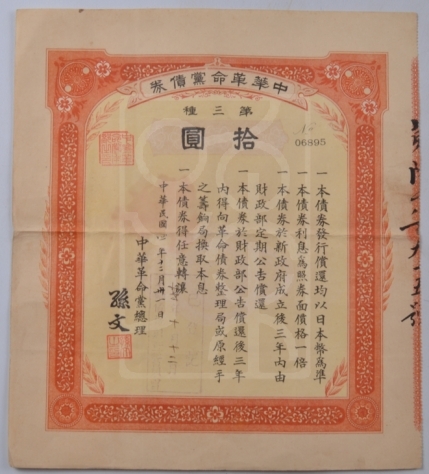 中華革命黨債券
第三種
拾圓
06895
一本債券發行償還均以日本幣為準
一本債券利息為照券面價格一倍
一本債券於新政府成立後三年內由
財政部定期公告償還
一本債券於財政部公告償還後三年
內得向革命債券整理局或原經手
之籌餉局換取本息
一本債券得任意轉讓
中華民國四年十二月卅一日
中華革命黨總理
孫文